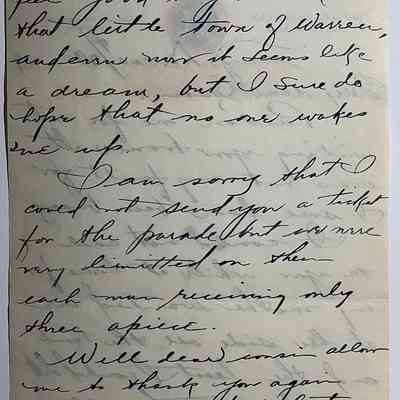 that little town of Warren,
and even now it seems like
a dream, but I sure do
hope that no one wakes
me up.
I am sorry that I
could not send you a ticket
for the parade but we were
very limitted on them
each man receiving only
three apiece.
Well dear cousi allow
me to thank you again